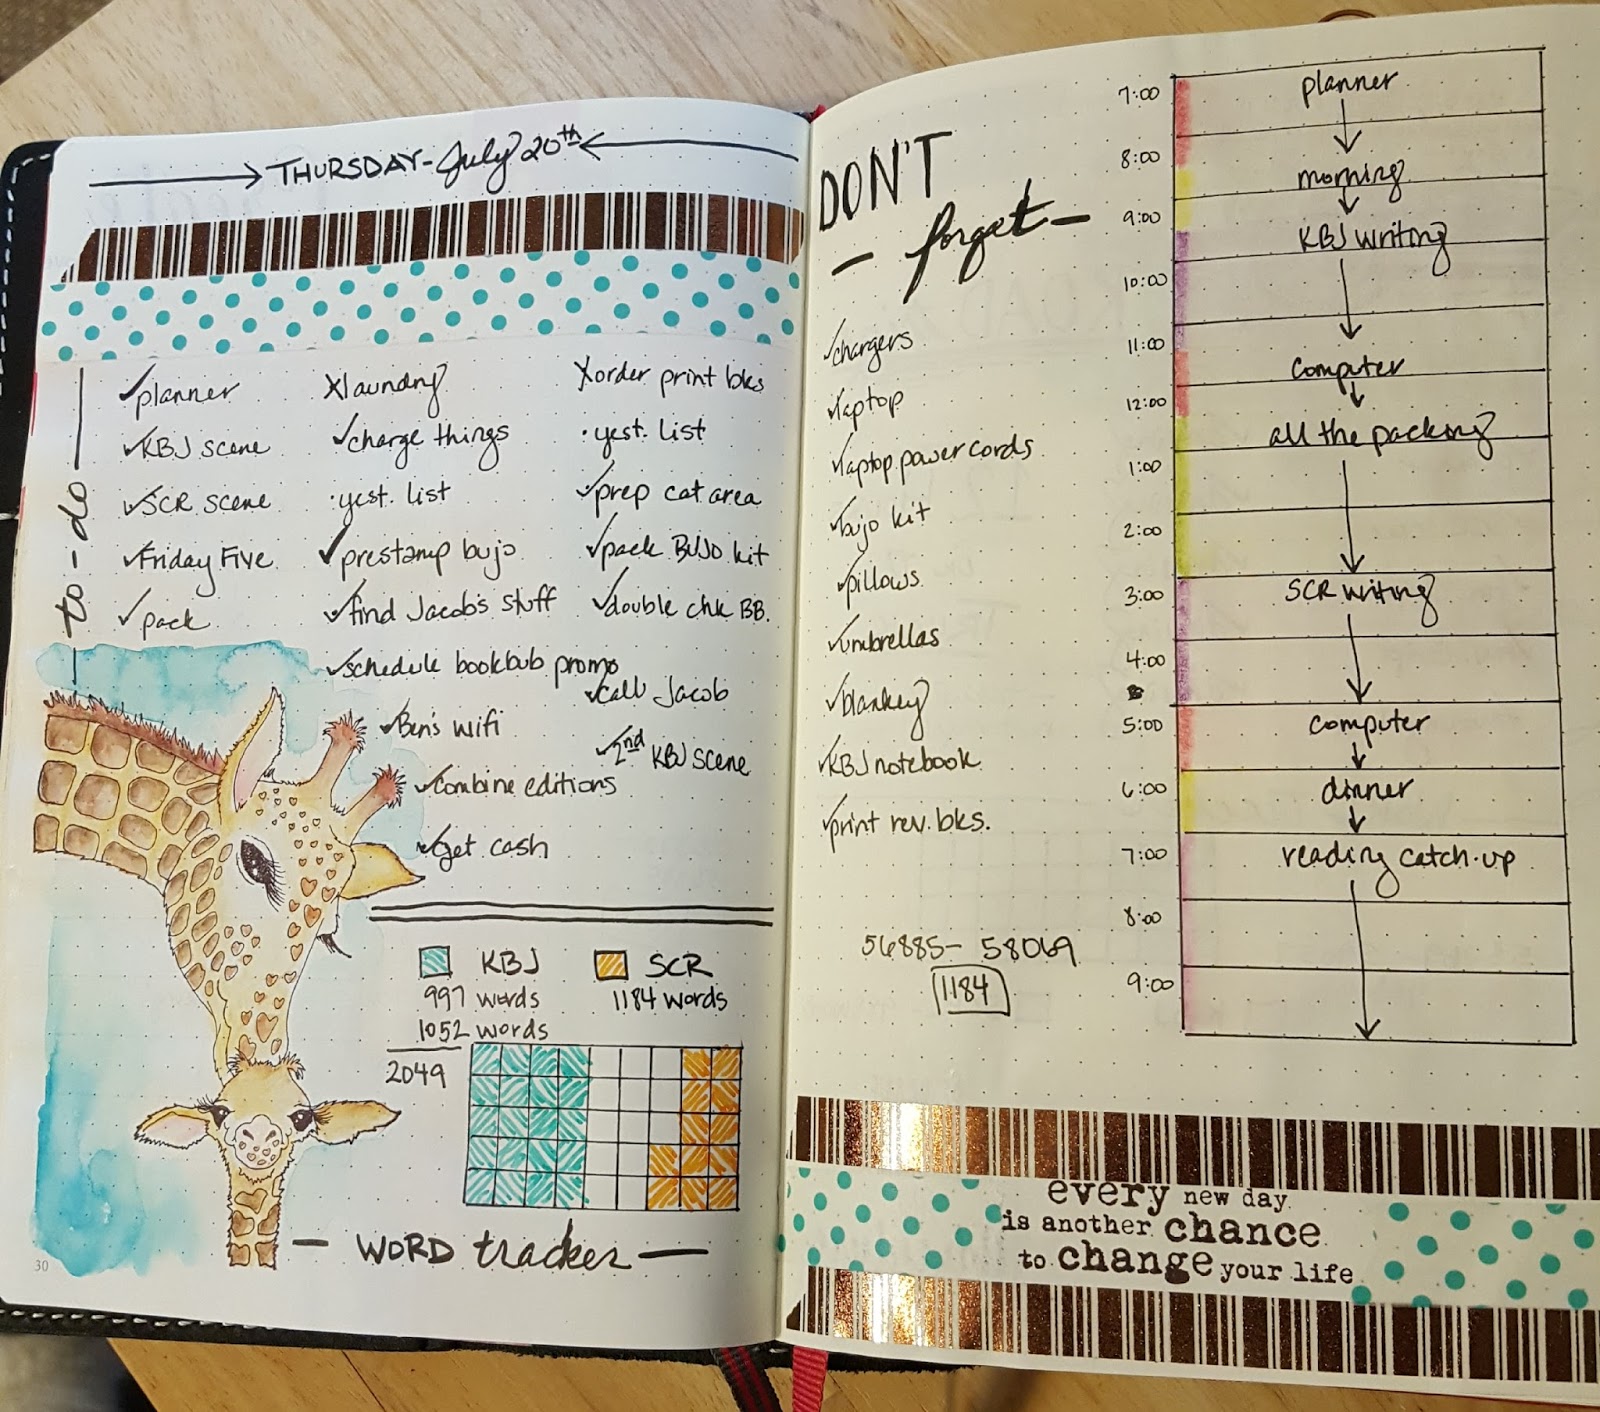 THURSDAY - July 20th
to-do
✓planner
✓KBJ scene
✓SCR scene
✓Friday Five
✓pack
Xlaundry
✓charge things
·yest. list
✓prestamp bujo
✓find Jacob's stuff
✓schedule bookbub promo
✓Ben's wifi
✓combine editions
✓get cash
Xorder print bks
·yest. list
✓prep cat area
✓pack BUJO kit
✓double chk BB.
✓call Jacob
✓2nd KBJ scene
KBJ
997 words
1052 words
2049
SCR
1184 words
- WORD tracker -
30
DON'T
- forget -
✓chargers
✓laptop
✓laptop power cords
✓bujo kit
✓pillows
✓umbrellas
✓blankey
✓KBJ notebook
✓print rev. bks.
56885- 58069
1184
7:00 planner
8:00 morning
9:00 KBJ writing
10:00
11:00 computer
12:00 all the packing
1:00
2:00
3:00 SCR writing
4:00
5:00 computer
6:00 dinner
7:00 reading catch-up
8:00
9:00
every new day
is another chance
to change your life